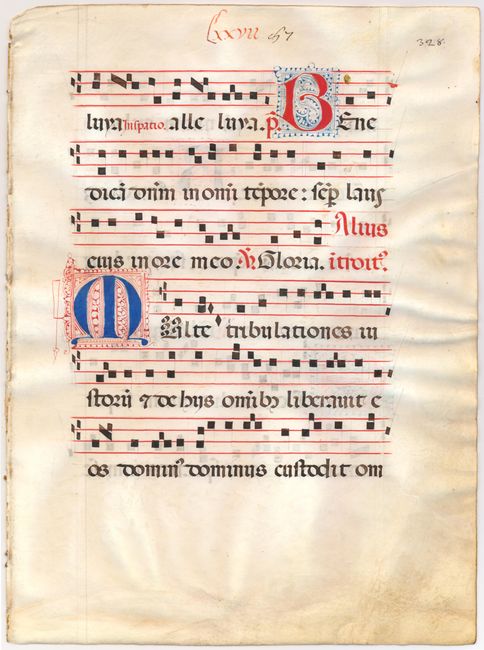 Lxxvii
328
luya alle luya. p̄s. BEne
dicā dn̄m in om̄i tēpore : sēp laus
eius in ore meo. Gloria. Alius ītroit⁹.
MUlte tribulationes iu
storū ⁊ de hys om̄ibȝ liberauit e
os domin⁹ dominus custodit om